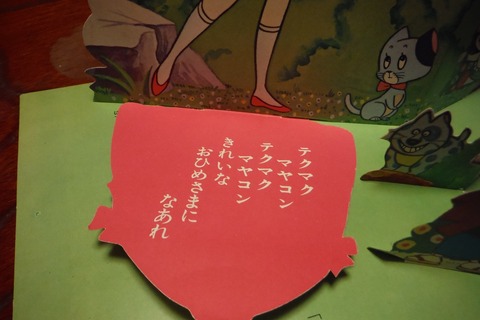 テクマク
マヤコン
テクマク
マヤコン
きれいな
おひめさまに
なあれ